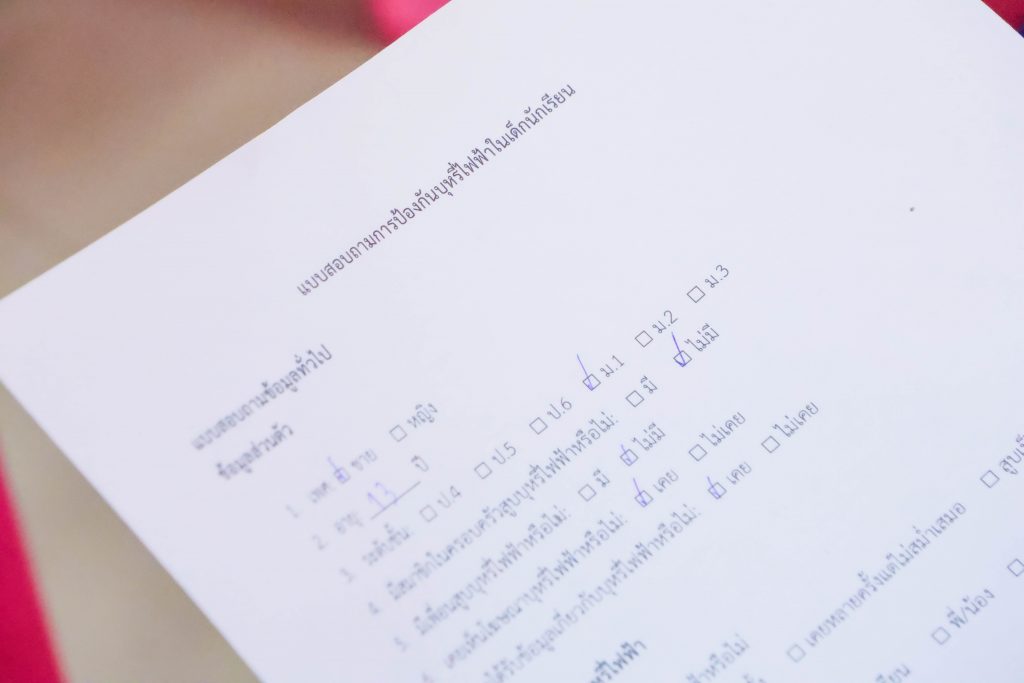 แบบสอบถามการป้องกันบุหรี่ไฟฟ้าในเด็กนักเรียน
แบบสอบถามข้อมูลทั่วไป
ข้อมูลส่วนตัว
1. เพศ ☑ ชาย ☐ หญิง
2. อายุ: 13 ปี
3. ระดับชั้น: ☐ ป.4 ☐ ป.5 ☐ ป.6 ☑ ม.1 ☐ ม.2 ☐ ม.3
4. มีสมาชิกในครอบครัวสูบบุหรี่ไฟฟ้าหรือไม่: ☐ มี ☑ ไม่มี
5. มีเพื่อนสูบบุหรี่ไฟฟ้าหรือไม่: ☐ มี ☑ ไม่มี
เคยเห็นโฆษณาบุหรี่ไฟฟ้าหรือไม่: ☑ เคย ☐ ไม่เคย
ได้รับข้อมูลเกี่ยวกับบุหรี่ไฟฟ้าหรือไม่: ☑ เคย ☐ ไม่เคย
หรี่ไฟฟ้า
ฟ้าหรือไม่
☐ เคยหลายครั้งแต่ไม่สม่ำเสมอ ☐
เรียน ☐ พี่/น้อง ☐